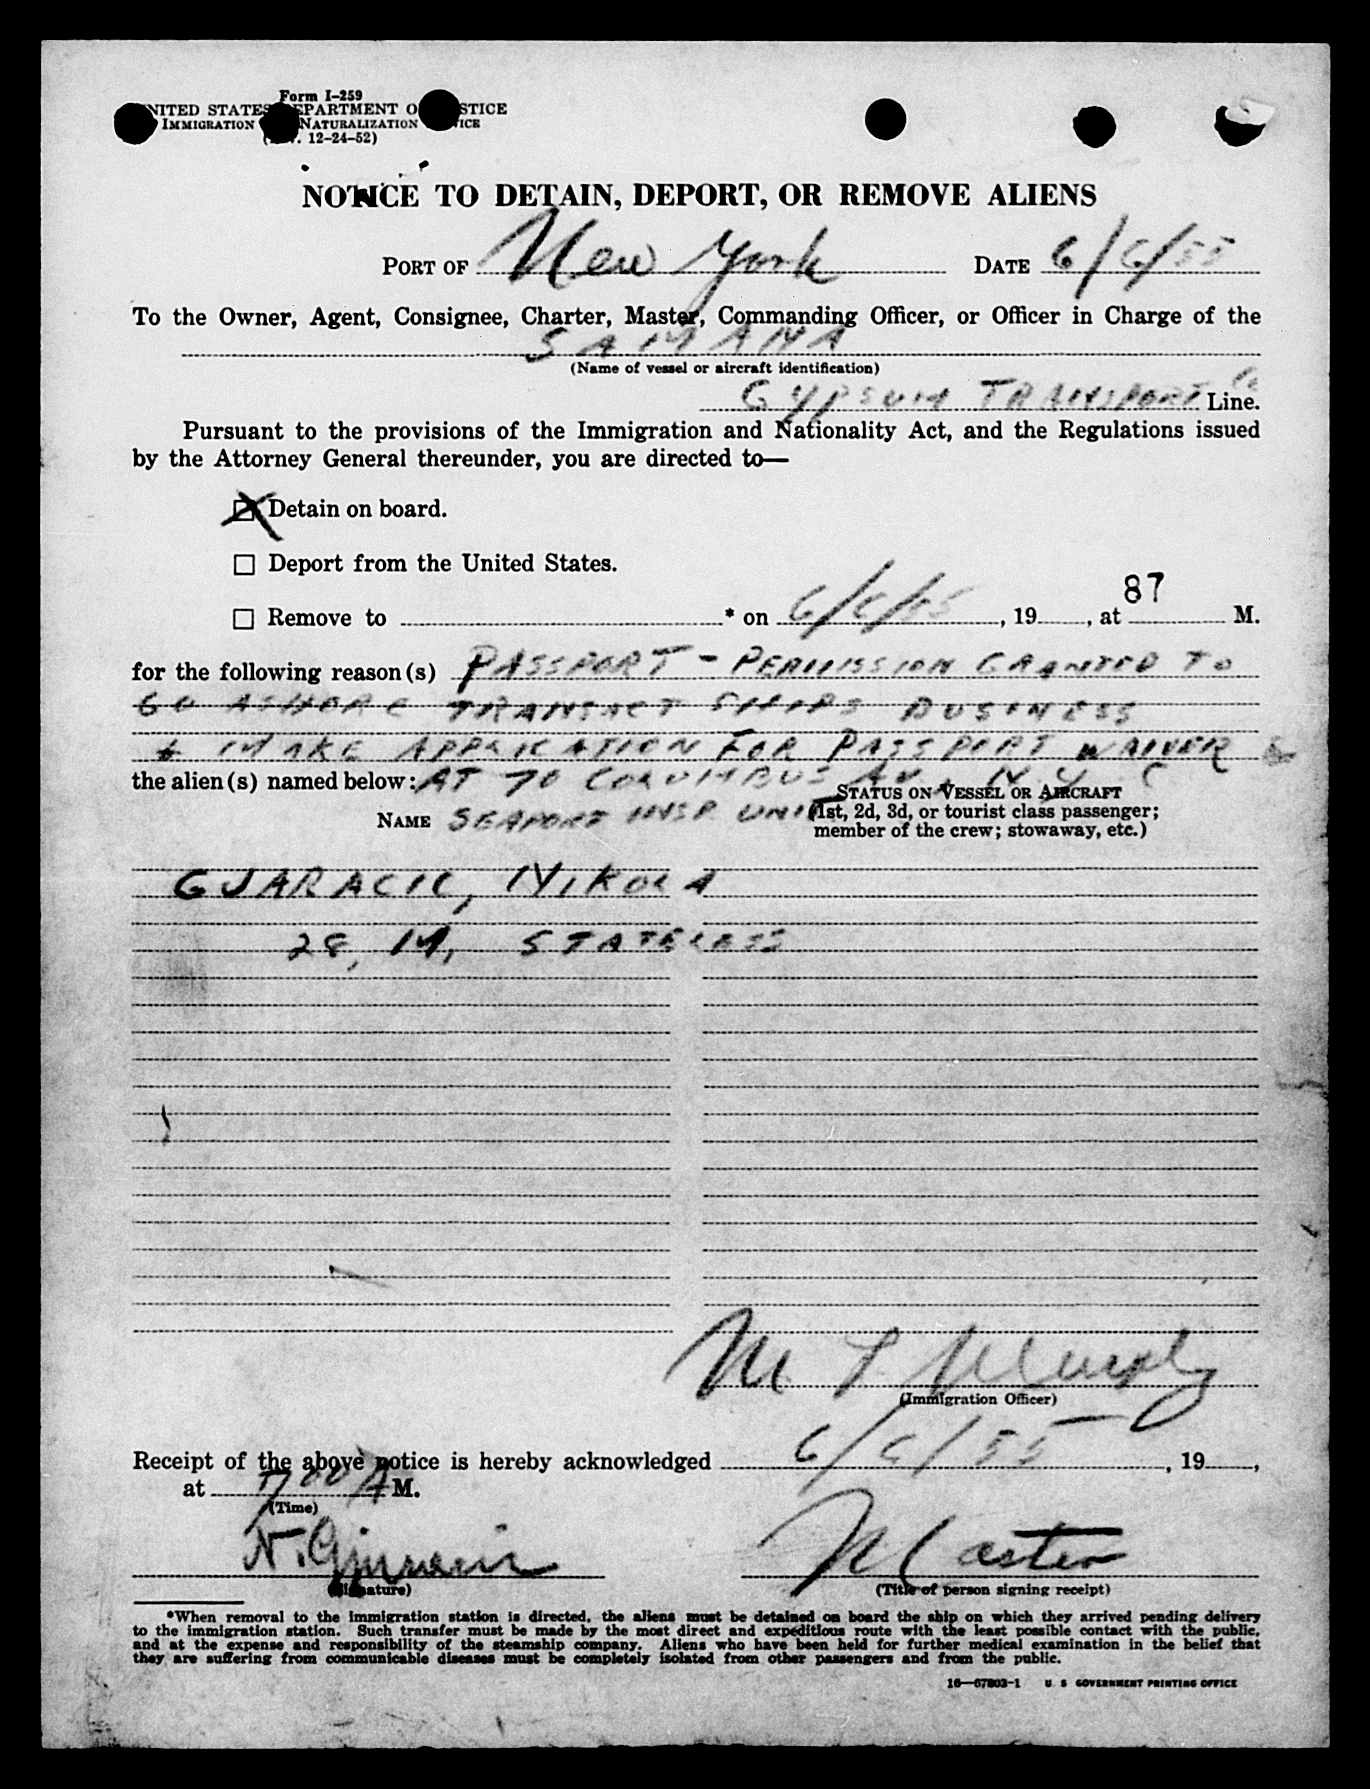 Form I-259
UNITED STATES DEPARTMENT OF JUSTICE
IMMIGRATION NATURALIZATION SERVICE
12-24-52)
NOTICE TO DETAIN, DEPORT, OR REMOVE ALIENS
PORT OF New York DATE 6/6/55
To the Owner, Agent, Consignee, Charter, Master, Commanding Officer, or Officer in Charge of the
SAMANA
(Name of vessel or aircraft identification)
GYPSUM TRANSPORT Co Line.
Pursuant to the provisions of the Immigration and Nationality Act, and the Regulations issued
by the Attorney General thereunder, you are directed to—
Detain on board.
Deport from the United States.
87
Remove to * on 6/6/55, 19 , at M.
for the following reason(s) PASSPORT - PERMISSION GRANTED TO
GO ASHORE TRANSACT SHIPS BUSINESS
& MAKE APPLICATION FOR PASSPORT WAIVER
the alien(s) named below: AT 70 COLUMBUS AV. N Y C
STATUS ON VESSEL OR AIRCRAFT
NAME SEAPORT INSP. UNIT (1st, 2d, 3d, or tourist class passenger;
member of the crew; stowaway, etc.)
GJARACIC, NIKOLA
28, M, STATELESS
M P Murphy
(Immigration Officer)
Receipt of the above notice is hereby acknowledged 6/6/55, 19 ,
at 7:00 A M.
(Time)
N. Master
(Signature) (Title of person signing receipt)
*When removal to the immigration station is directed, the aliens must be detained on board the ship on which they arrived pending delivery
to the immigration station. Such transfer must be made by the most direct and expeditious route with the least possible contact with the public,
and at the expense and responsibility of the steamship company. Aliens who have been held for further medical examination in the belief that
they are suffering from communicable diseases must be completely isolated from other passengers and from the public.
16—67803-1 U S GOVERNMENT PRINTING OFFICE